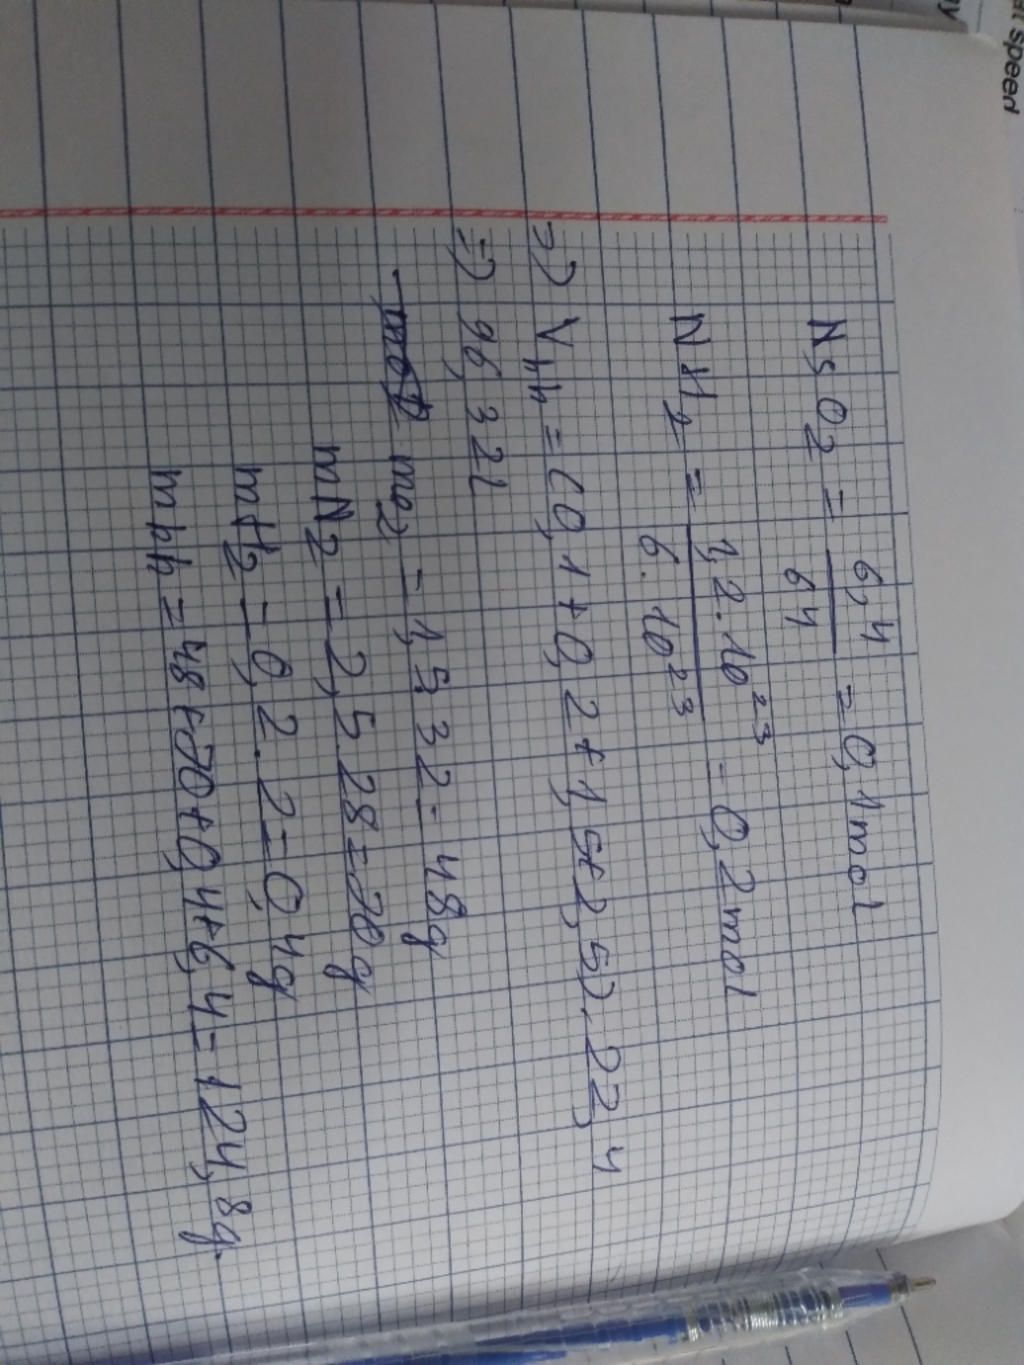 NSO2 = 6,4 / 64 = 0,1mol
NH2 = 1,2.10^23 / 6.10^23 = 0,2mol
=> Vhh = (0,1+0,2+1,5+2,5).22,4
=> 96,32l
- mO2 = 1,5.32 = 48g
mN2 = 2,5.28=70g
mH2 = 0,2.2=0,4g
mhh = 48+70+0,4+6,4=124,8g
at speed